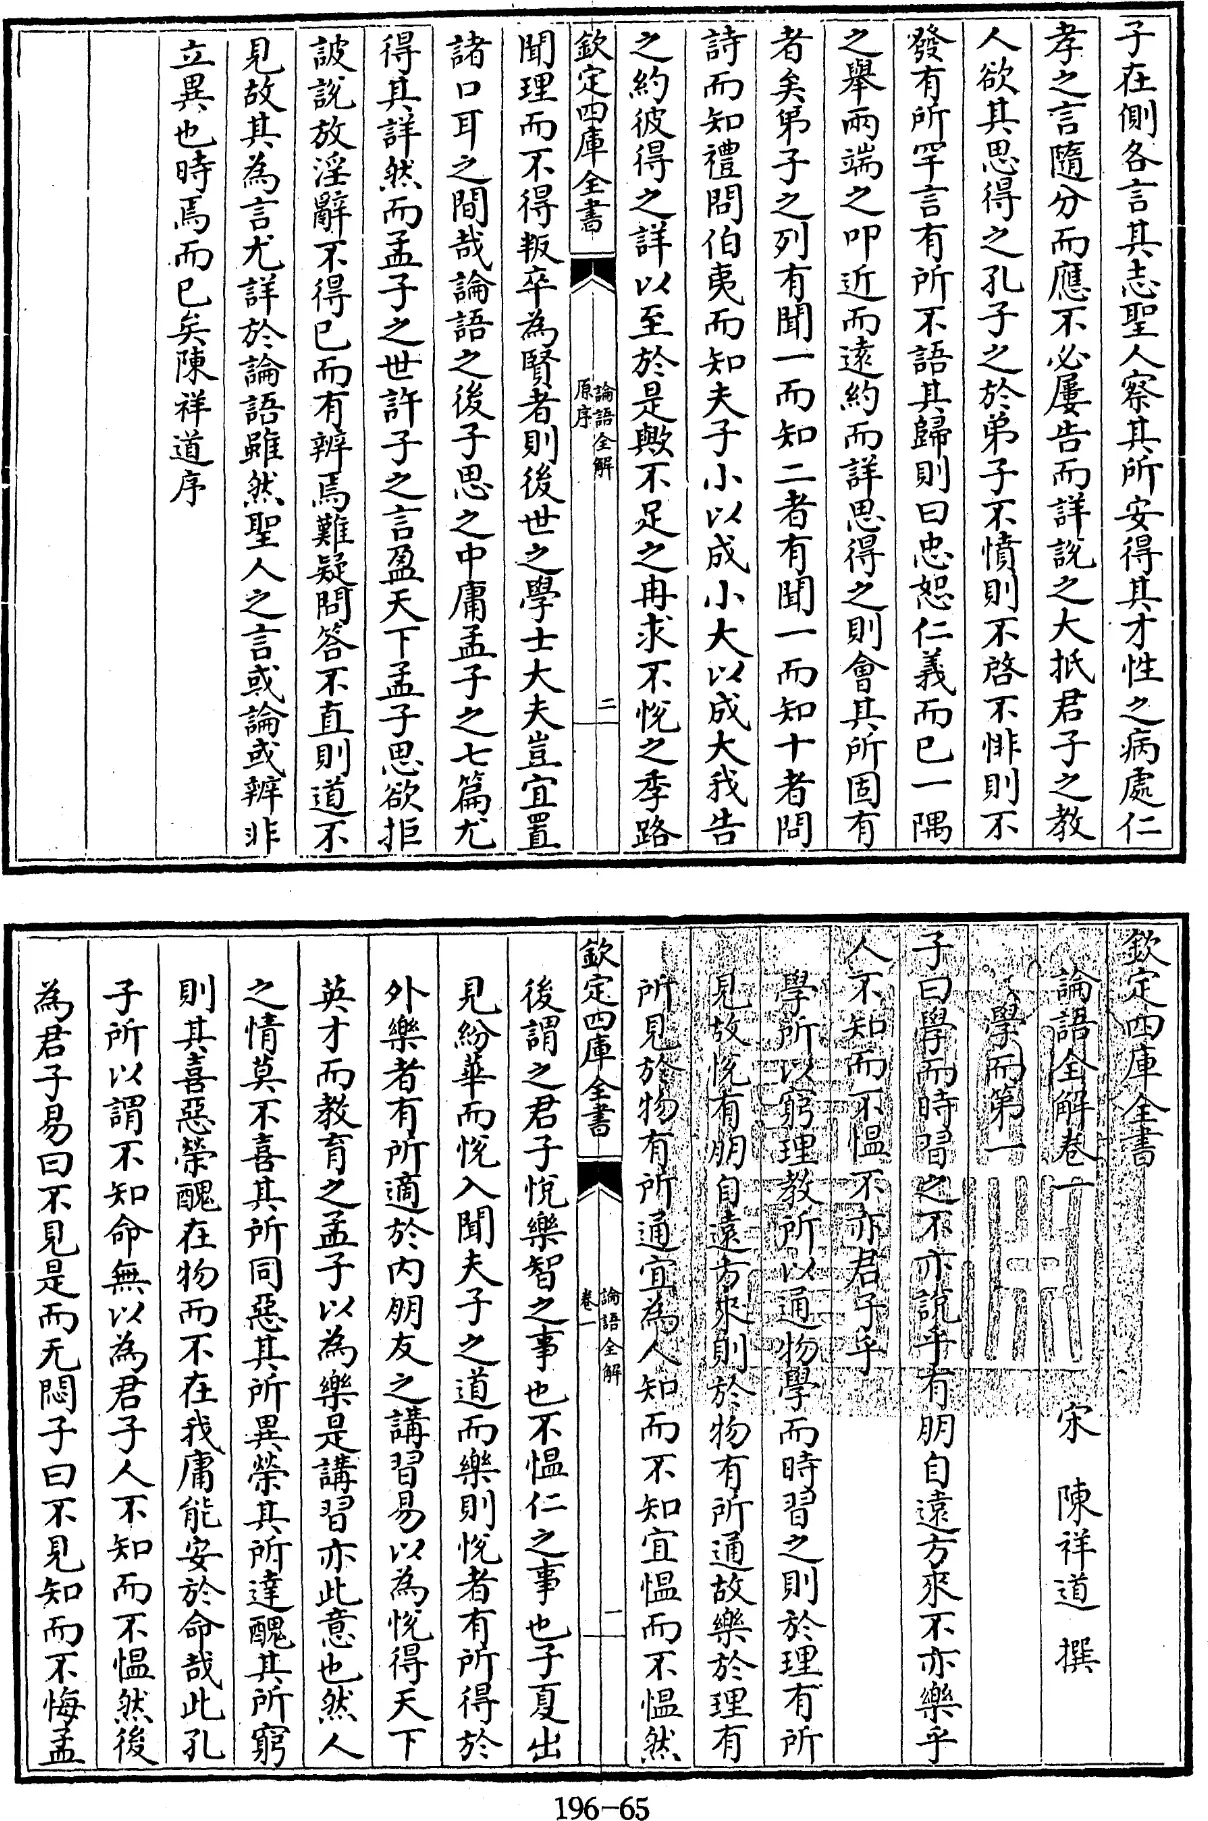 子在側各言其志聖人察其所安得其才性之病處仁
孝之言隨分而應不必屢告而詳說之大抵君子之教
人欲其思得之孔子之於弟子不憤則不啓不悱則不
發有所罕言有所不語其歸則曰忠恕仁義而已一隅
之舉兩端之叩近而遠約而詳思得之則會其所固有
者矣弟子之列有聞一而知二者有聞一而知十者問
詩而知禮問伯夷而知夫子小以成小大以成大我告
之約彼得之詳以至於是歟不足之冉求不悅之季路
欽定四庫全書
論語全解
原序
二
聞理而不得叛卒為賢者則後世之學士大夫豈宜置
諸口耳之間哉論語之後子思之中庸孟子之七篇尤
得其詳然而孟子之世許子之言盈天下孟子思欲拒
詖說放淫辭不得已而有辨焉難疑問答不直則道不
見故其為言尤詳於論語雖然聖人之言或論或辨非
立異也時焉而已矣陳祥道序
欽定四庫全書
論語全解卷一 宋 陳祥道 撰
學而第一
子曰學而時習之不亦說乎有朋自遠方來不亦樂乎
人不知而不慍不亦君子乎
學所以窮理教所以通物學而時習之則於理有所
見故悅有朋自遠方來則於物有所通故樂於理有
所見於物有所通宜為人知而不知宜慍而不慍然
欽定四庫全書
論語全解
卷一
一
後謂之君子悅樂智之事也不慍仁之事也子夏出
見紛華而悅入聞夫子之道而樂則悅者有所得於
外樂者有所適於内朋友之講習易以為悅得天下
英才而教育之孟子以為樂是講習亦此意也然人
之情莫不喜其所同惡其所異榮其所達醜其所窮
則其喜惡榮醜在物而不在我庸能安於命哉此孔
子所以謂不知命無以為君子人不知而不慍然後
為君子易曰不見是而无悶子曰不見知而不悔孟
196-65